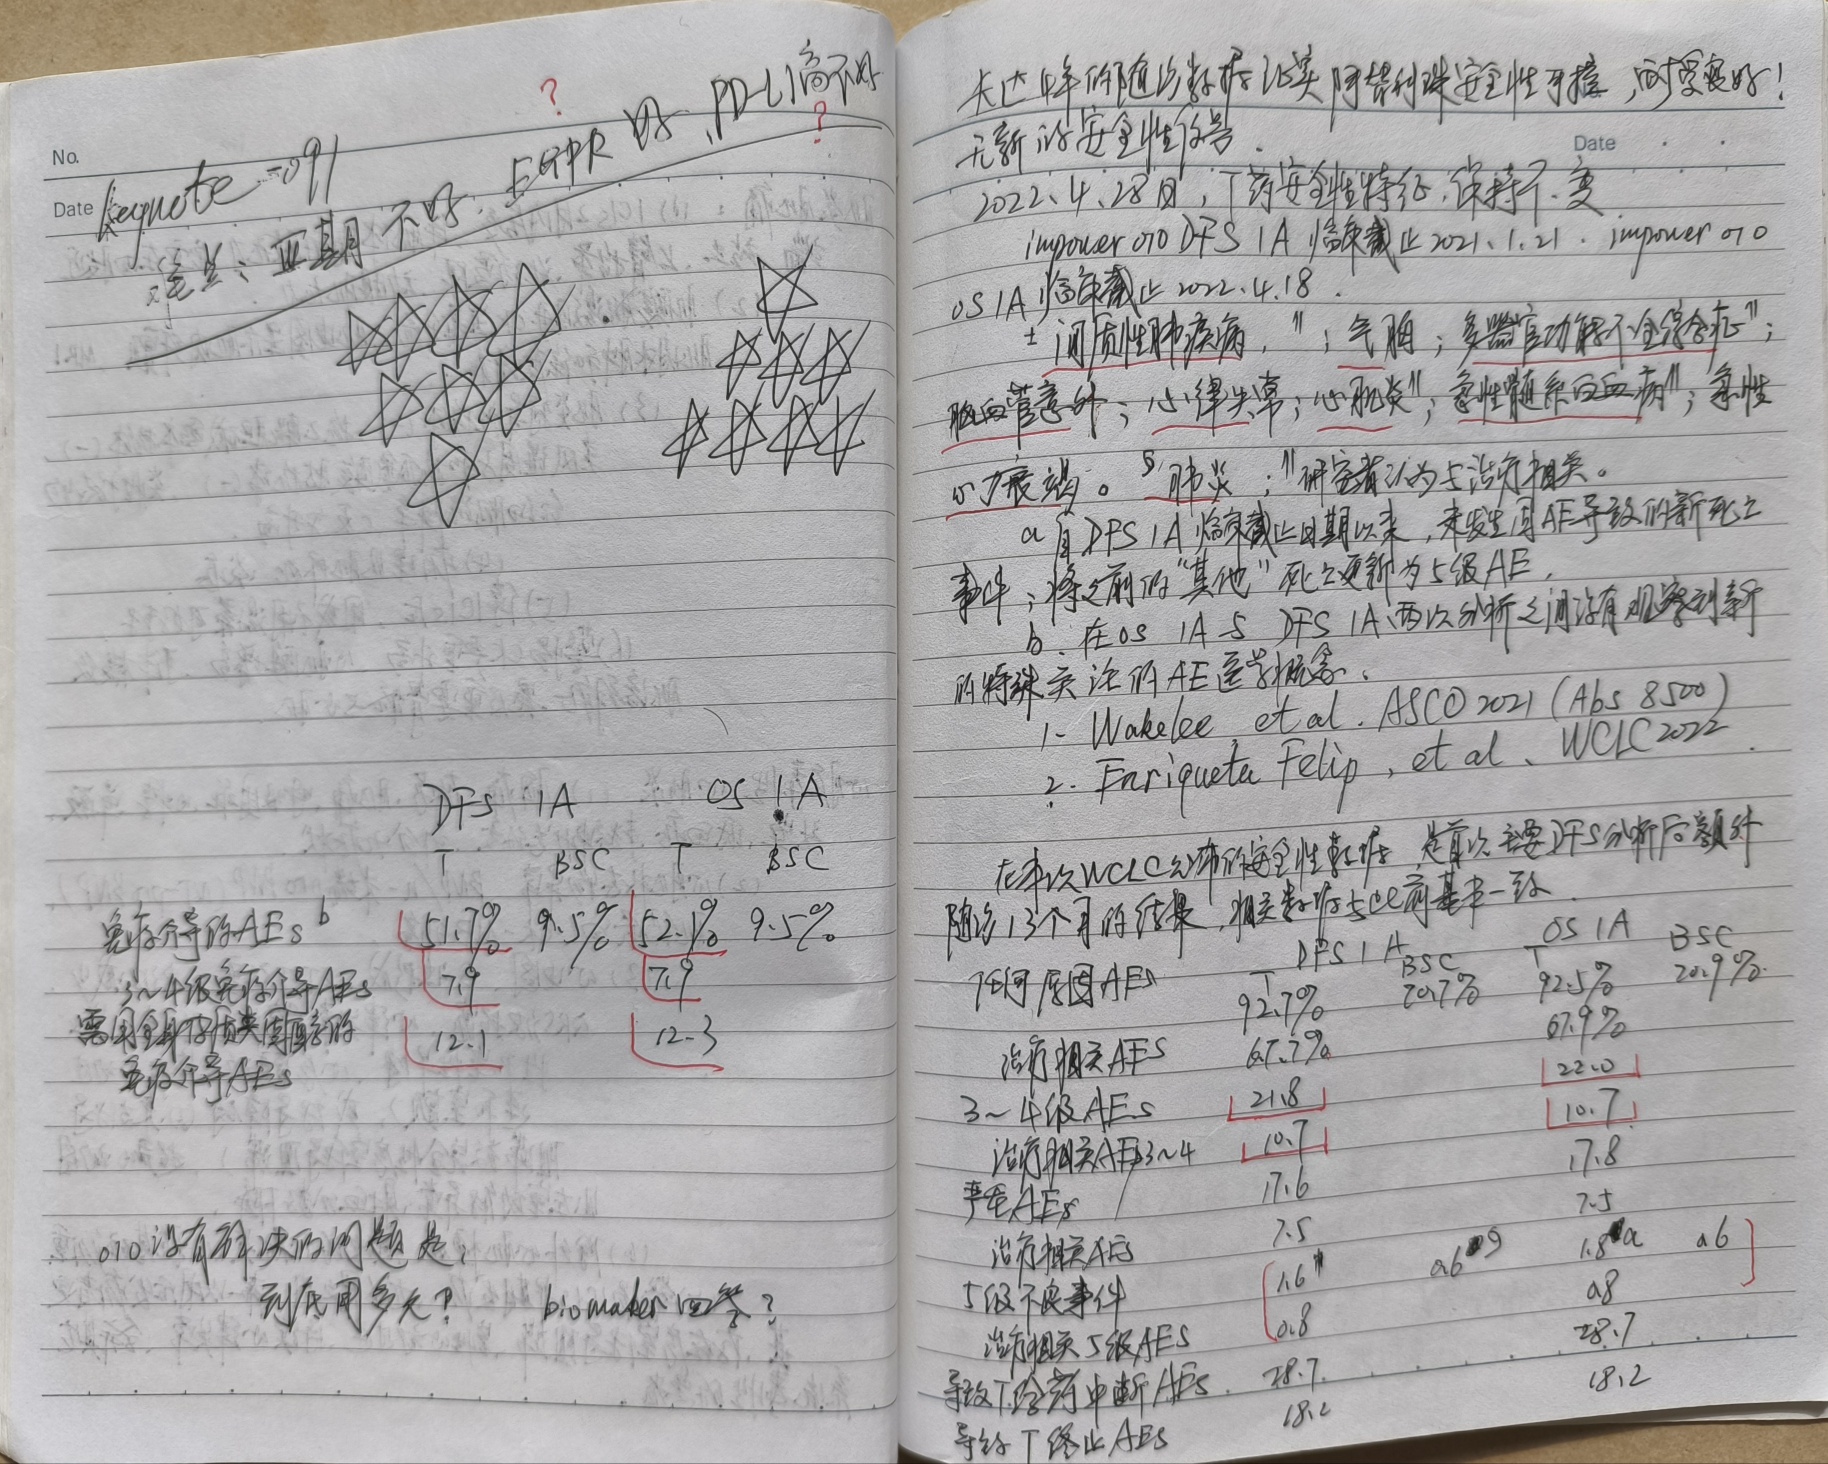 No.
Date
keynote-091
难点：Ⅲ期不好、EGFR 好、PD-L1高不好
? ?
DFS IA OS IA
T BSC T BSC
免疫介导的AEs b 51.7% 9.5% 52.1% 9.5%
3~4级免疫介导AEs 7.9 7.9
需用全身皮质类固醇的 12.1 12.3
免疫介导AEs
010没有解决的问题是，
到底用多久? biomaker 回答?
长达4年的随访数据证实阿替利珠安全性可控，耐受良好！
Date
无新的安全性信号.
2022.4.28日，T药安全性特征.保持不变
impower 010 DFS IA 临床截止 2021.1.21. impower 010
OS IA 临床截止 2022.4.18.
± 间质性肺疾病，"；气胸；多器官功能不全综合征"；
脑血管意外；心律失常；心肌炎"；急性髓系白血病"；急性
心力衰竭。 肺炎；"研究者认为与治疗相关。
a 自DFS IA临床截止日期以来，未发生因AE导致的新死亡
事件；将之前的"其他"死亡更新为5级AE.
b. 在OS IA与 DFS IA两次分析之间没有观察到新
的特殊关注的AE医学概念.
1- Wakelee et al. ASCO 2021 (Abs 8500)
2. Enriqueta Felip, et al、WCLC 2022.
在本次WCLC公布的安全性数据，是首次主要DFS分析后额外
随访13个月的结果，相关数据与之前基本一致.
DFS IA OS IA
T BSC T BSC
任何原因AEs 92.7% 70.7% 92.5% 70.9%
治疗相关AEs 67.7% 67.9%
3~4级AEs 21.8 22.0
治疗相关AE3~4 10.7 10.7
严重AEs 17.6 17.8
治疗相关AEs 7.5 7.5
5级不良事件 1.6" 0.6 g 1.8 a 0.6
治疗相关5级AEs 0.8 0.8
导致T给药中断AEs. 28.7 28.7
导致T终止AEs 18.2 18.2